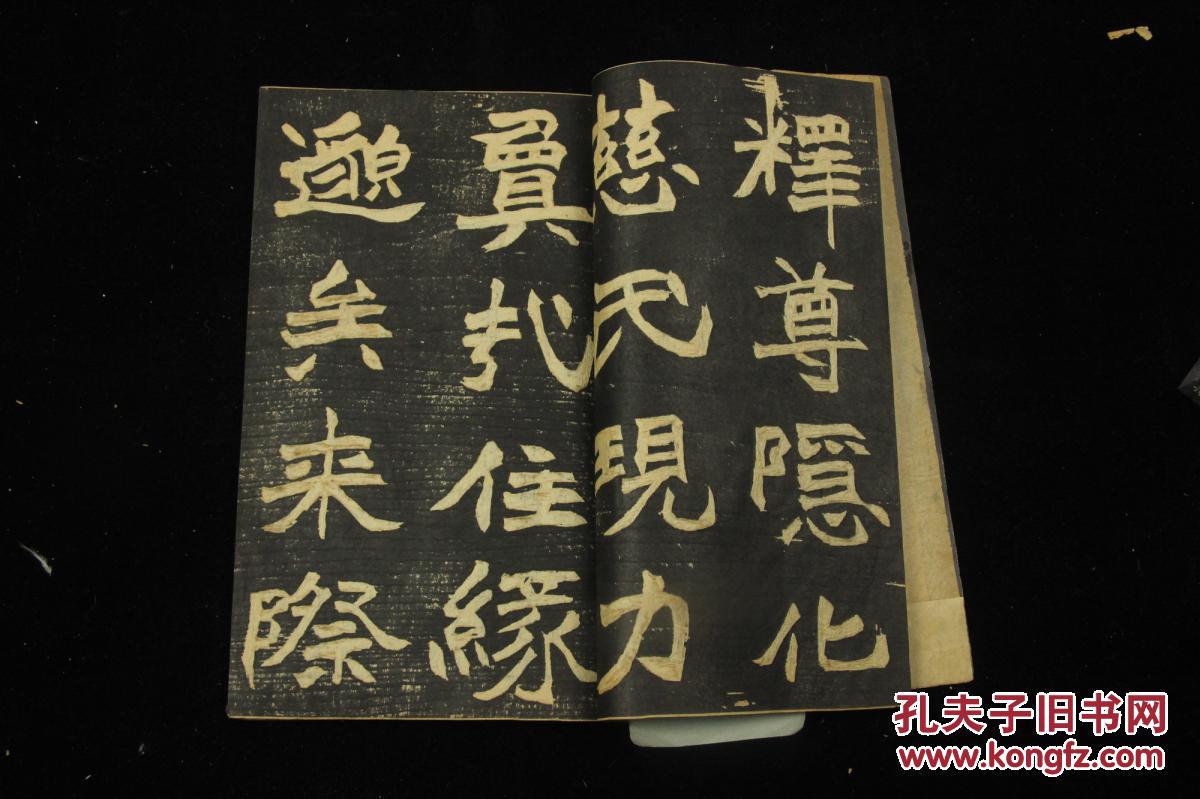 釋尊隱化
慈氏現力
住緣
邈矣来際
孔夫子旧书网
www.kongfz.com